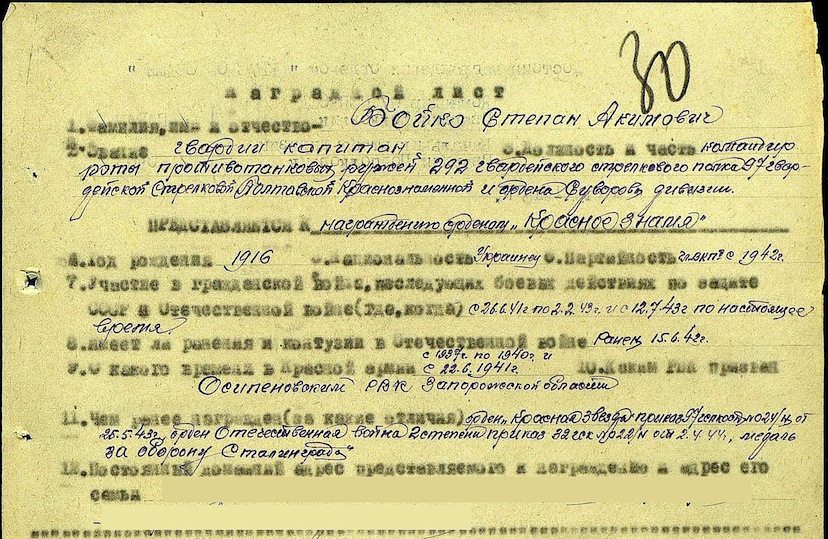 30
наградной лист
1.Фамилия,имя и отчество- Бойко Степан Акимович
2.Звание гвардии капитан 3.Должность и часть командир
роты противотанковых ружей 292 гвардейского стрелкового полка 97 гвар-
дейской Стрелковой Полтавской Краснознаменной и ордена Суворова дивизии.
ПРЕДСТАВЛЯЕТСЯ К награждению орденом „Красное Знамя"
4.Год рождения 1916 5.Национальность Украинец 6.Партийность чл.ВКП(б) с 1942г.
7.Участие в гражданской войне,последующих боевых действиях по защите
СССР и Отечественной войне(где,когда) с 26.6.41г по 2.2.43г. и с 12.7.43г по настоящее
время.
8.Имеет ли ранения и контузии в Отечественной войне Ранен 15.6.42г.
с 1937г. по 1940г. и
9.С какого времени в Красной армии с 22.6.1941г. 10.Каким РВК призван
Осипеновским РВК Запорожской области
11.Чем ранее награжден(за какие отличия) орден „Красная Звезда" приказ 97 гсд №024/н от
26.5.43г., орден Отечественная война 2 степени приказ 32 гск №22/н от 2.4.44., медаль
„За оборону Сталинграда"
12.Постоянный домашний адрес представляемого к награждению и адрес его
семьи